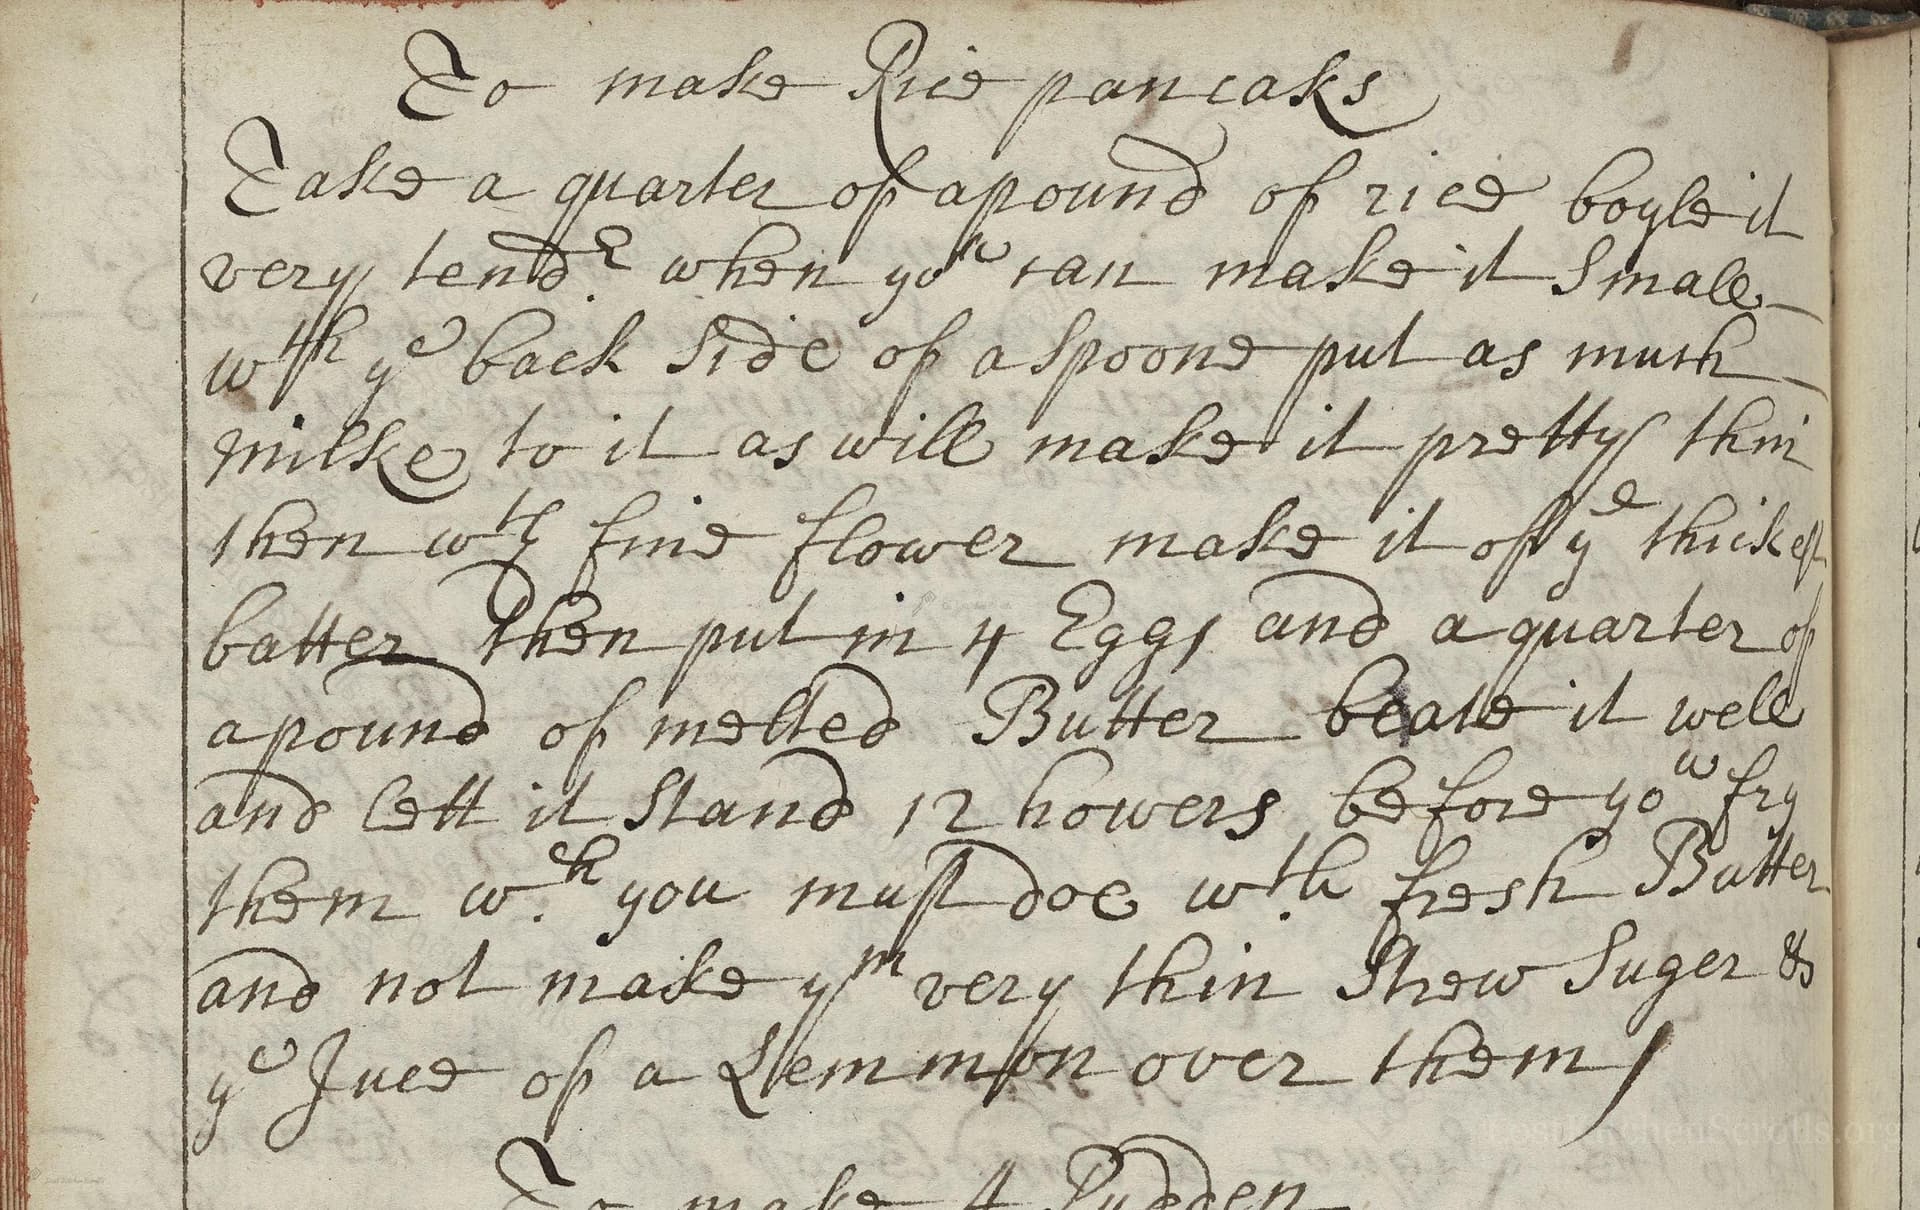 To make Rice pancaks
Take a quarter of a pound of rice boyle it
very tendr when you can make it Smale
wth ye back Side of a Spoone put as much
milke to it as will make it pretty thin
then wth fine flower make it of ye thickest
batter then put in 4 Eggs and a quarter of
a pound of melted Butter beate it well
and lett it Stand 12 howers before yow fry
them wch you must doe wth fresh Butter
and not make ym very thin Strew Suger &
ye Juce of a Lemmon over them
To make A Pudden